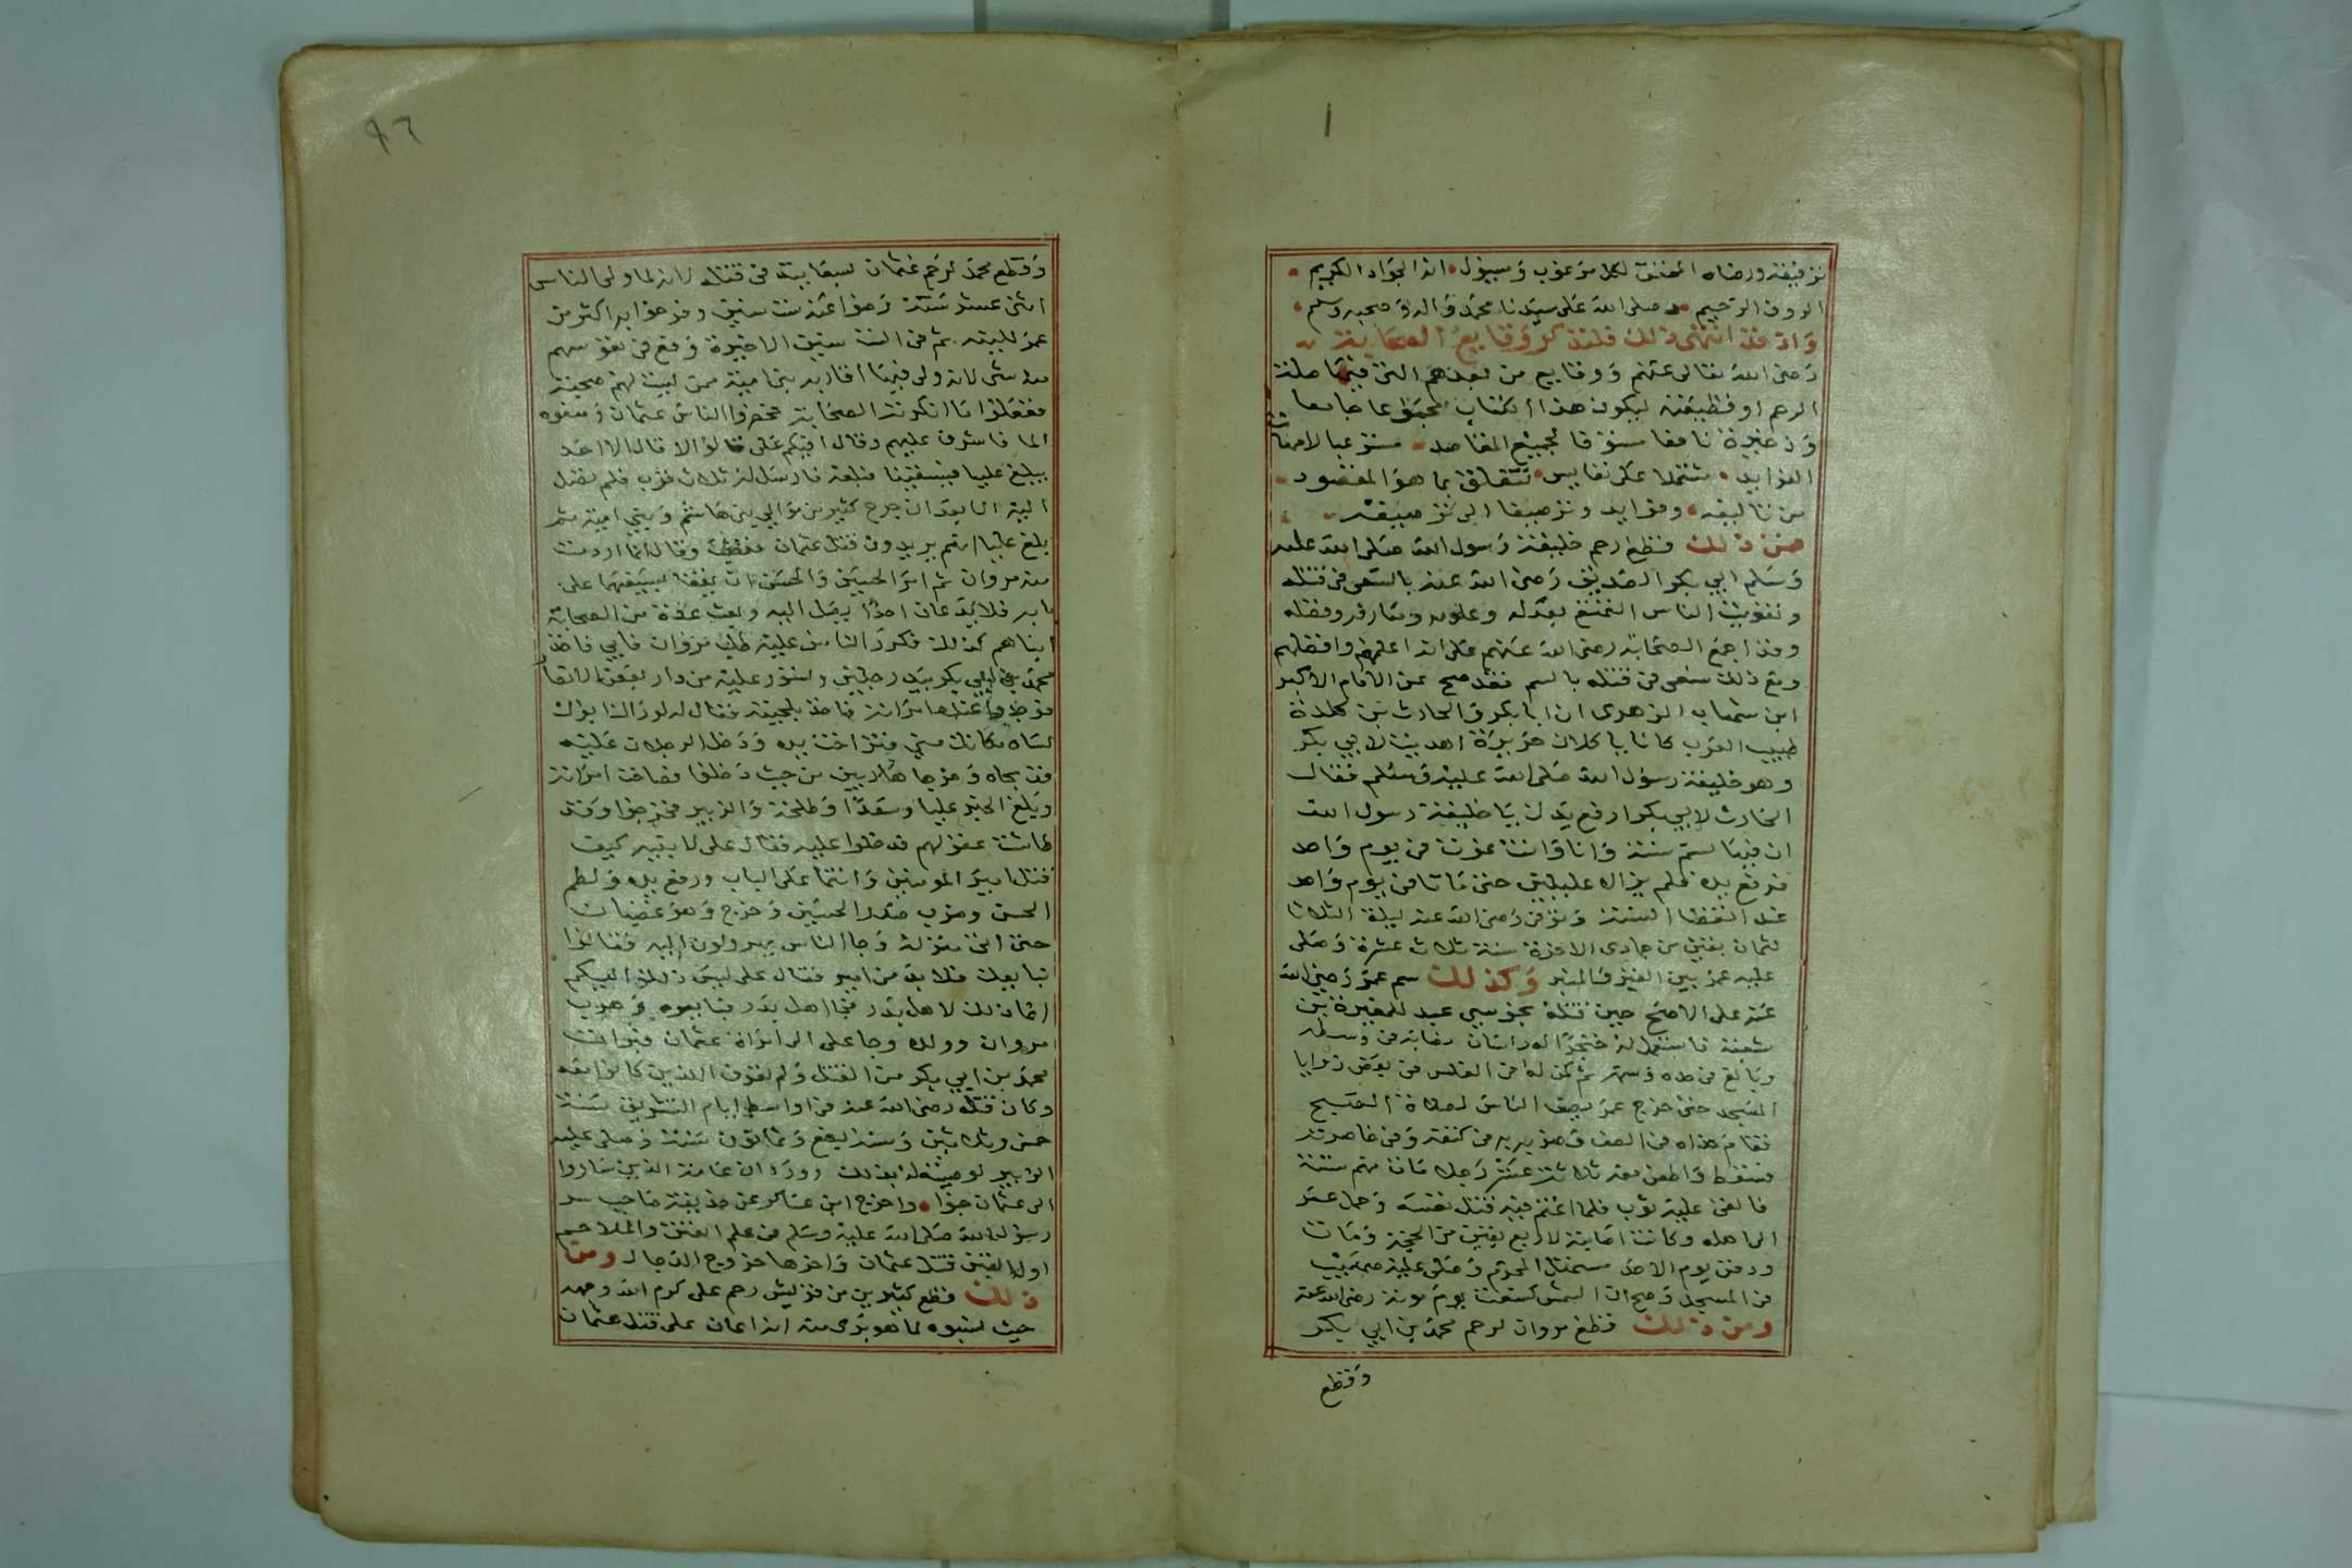 توفيقه ورضاه المحقق لكل مرغوب وسيول انه الجواد الكريم
الروف الرحيم وصلى الله على سيدنا محمد واله وصحبه وسلم
واذ قد انتهى ذلك فلنذكر وقايع الصحابة
رضى الله تعالى عنهم ووقايع من بعدهم التى فيها صلة
الرحم او قطيعته ليكون هذا الكتاب مجموعا جامعا
وذخيرة نافعا مسوقا لجميع المقاصد مستوعبا لامهات
الفوايد مشتملا على نفايس تتعلق بما هو المقصود
من تاليفه وفوايد وترصيفا الى ترصيفه
فمن ذلك قطع رحم خليفة رسول الله صلى الله عليه
وسلم ابي بكر الصديق رضى الله عنه بالسعى فى قتله
وتفويت الناس التمتع بعدله وعلومه ومعارفه وفضله
وقد اجمع الصحابة رضى الله عنهم على انه اعلمهم وافضلهم
ومع ذلك سعى فى قتله بالسم فقد صح عن الامام الاكبر
ابن شهاب الزهرى ان ابا بكر والحارث بن كلدة
طبيب العرب كانا ياكلان حريرة اهديت لابي بكر
وهو خليفة رسول الله صلى الله عليه وسلم فقال
الحارث لابي بكر ارفع يدك يا خليفة رسول الله
ان فيها لسم سنة وانا وانت نموت فى يوم واحد
فرفع يده فلم يزالا عليلين حتى ماتا فى يوم واحد
عند انقضا السنة وتوفى رضى الله عنه ليلة الثلاثا
لثمان بقين من جمادى الاخرة سنة ثلاث عشرة وصلى
عليه عمر بين القبر والمنبر وكذلك سم عمر رضى الله
عنه على الاصح حين قتله مجوسي عبد للمغيرة بن
شعبة فاستعمل له خنجرا له راسان نصابه فى وسطه
وبالغ فى حده وسمه ثم كمن له فى الغلس فى بعض زوايا
المسجد حتى خرج عمر يوقظ الناس لصلاة الصبح
فقام حذاه فى الصف وضربه فى كتفه وفى خاصرته
فسقط وطعن معه ثلاثة عشر رجلا مات منهم ستة
فالقى عليه ثوب فلما اغتم فيه قتل نفسه وحمل عمر
الى اهله وكانت اصابته لاربع بقين من الحجة ومات
ودفن يوم الاحد مستهل المحرم وصلى عليه صهيب
فى المسجد وصح ان الشمس كسفت يوم موته رضى الله عنه
ومن ذلك قطع مروان لرحم محمد بن ابي بكر
وقطع
٩٦
وقطع محمد لرحم عثمان بسعايته فى قتله لانه لما ولى الناس
اثنى عشر سنة رضوا عنه ست سنين وفرحوا به اكثر من
عمر للينه ثم فى الست سنين الاخيرة وقع فى نفوسهم
منه شى لانه ولى فيها اقاربه بنى امية ممن ليست لهم صحبة
ففعلوا ما انكرته الصحابة فحصر الناس عثمان ومنعوه
الما فاشرف عليهم وقال افيكم على قالوا لا قال الا احد
يبلغ عليا فيسقينا فبلغه فارسل له ثلاث قرب فلم تصل
اليه الا بعد ان جرح كثير من موالي بنى هاشم وبني امية ثم
بلغ عليا انهم يريدون قتل عثمان فغضب وقال انما اردت
منه مروان ثم امر الحسين والحسن ان يقفا بسيفهما على
بابه فلا يدعان احدا يصل اليه وبعث عدة من الصحابة
ابناهم كذلك فكرر الناس عليه طلب مروان فابي فاخذ
محمد بن ابي بكر بيد رجلين وتسور عليه من دار بعض الانصار
فوجدوا عنده امراته فاخذ بلحيته فقال له لو راك ابوك
لساه مكانك مني فتراخت يده ودخل الرجلان عليه
فتوجاه وخرجا هاربين من حيث دخلا فصاحت امراته
وبلغ الخبر عليا وسعدا وطلحة والزبير فخرجوا وقد
طاشت عقولهم فدخلوا عليه فقال على لابنيه كيف
قتل امير المومنين وانتما على الباب ورفع يده ولطم
الحسن وضرب صدر الحسين وخرج وهو غضبان
حتى اتى منزله وجا الناس يهرولون اليه فقالوا
نبايعك فلا بد من امير فقال على ليس ذلك اليكم
انما ذلك لاهل بدر فجا اهل بدر فبايعوه وهرب
مروان وولده وجا على الى امراة عثمان فبرات
محمد بن ابي بكر من القتل ولم تعرف اللذين كانوا معه
وكان قتله رضى الله عنه فى اواسط ايام التشريق سنة
خمس وثلاثين وسنه بضع وثمانون سنة وصلى عليه
الزبير لوصيته له بذلك وورد ان عامة الذين ساروا
الى عثمان جنوا واخرج ابن عساكر عن حذيفة صاحب سر
رسول الله صلى الله عليه وسلم فى علم الفتن والملاحم
اول الفتن قتل عثمان واخرها خروج الدجال ومن
ذلك قطع كثيرين من قريش رحم على كرم الله وجهه
حيث نسبوه لما هو برى منه انه اعان على قتل عثمان